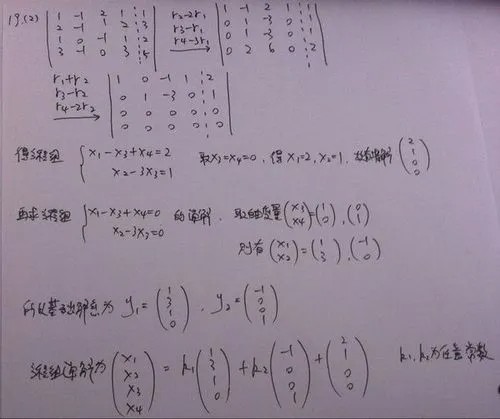 19.(2) | 1 -1 2 1 1 | r2-2r1 | 1 -1 2 1 1 |
| 2 -1 1 2 3 | r3-r1 | 0 1 -3 0 1 |
| 1 0 -1 1 2 | r4-3r1 | 0 1 -3 0 1 |
| 3 -1 0 3 | | 0 2 6 0 2 |
r1+r2 | 1 0 -1 1 2 |
r3-r2 | 0 1 -3 0 1 |
r4-2r2 | 0 0 0 0 0 |
| 0 0 0 0 0 |
得方程组 { x1-x3+x4=2 x2-3x3=1 取x3=x4=0, 得x1=2, x2=1, 故特解 (2 1 0 0)
再求方程组 { x1-x3+x4=0 x2-3x3=0 的通解, 取自由变量 (x3 x4)=(1 0), (0 1)
则有 (x1 x2)=(1 3), (-1 0)
所以基础解系为 y1=(1 3 1 0), y2=(-1 0 0 1)
方程组通解为 (x1 x2 x3 x4) = k1(1 3 1 0) + k2(-1 0 0 1) + (2 1 0 0) k1, k2为任意常数